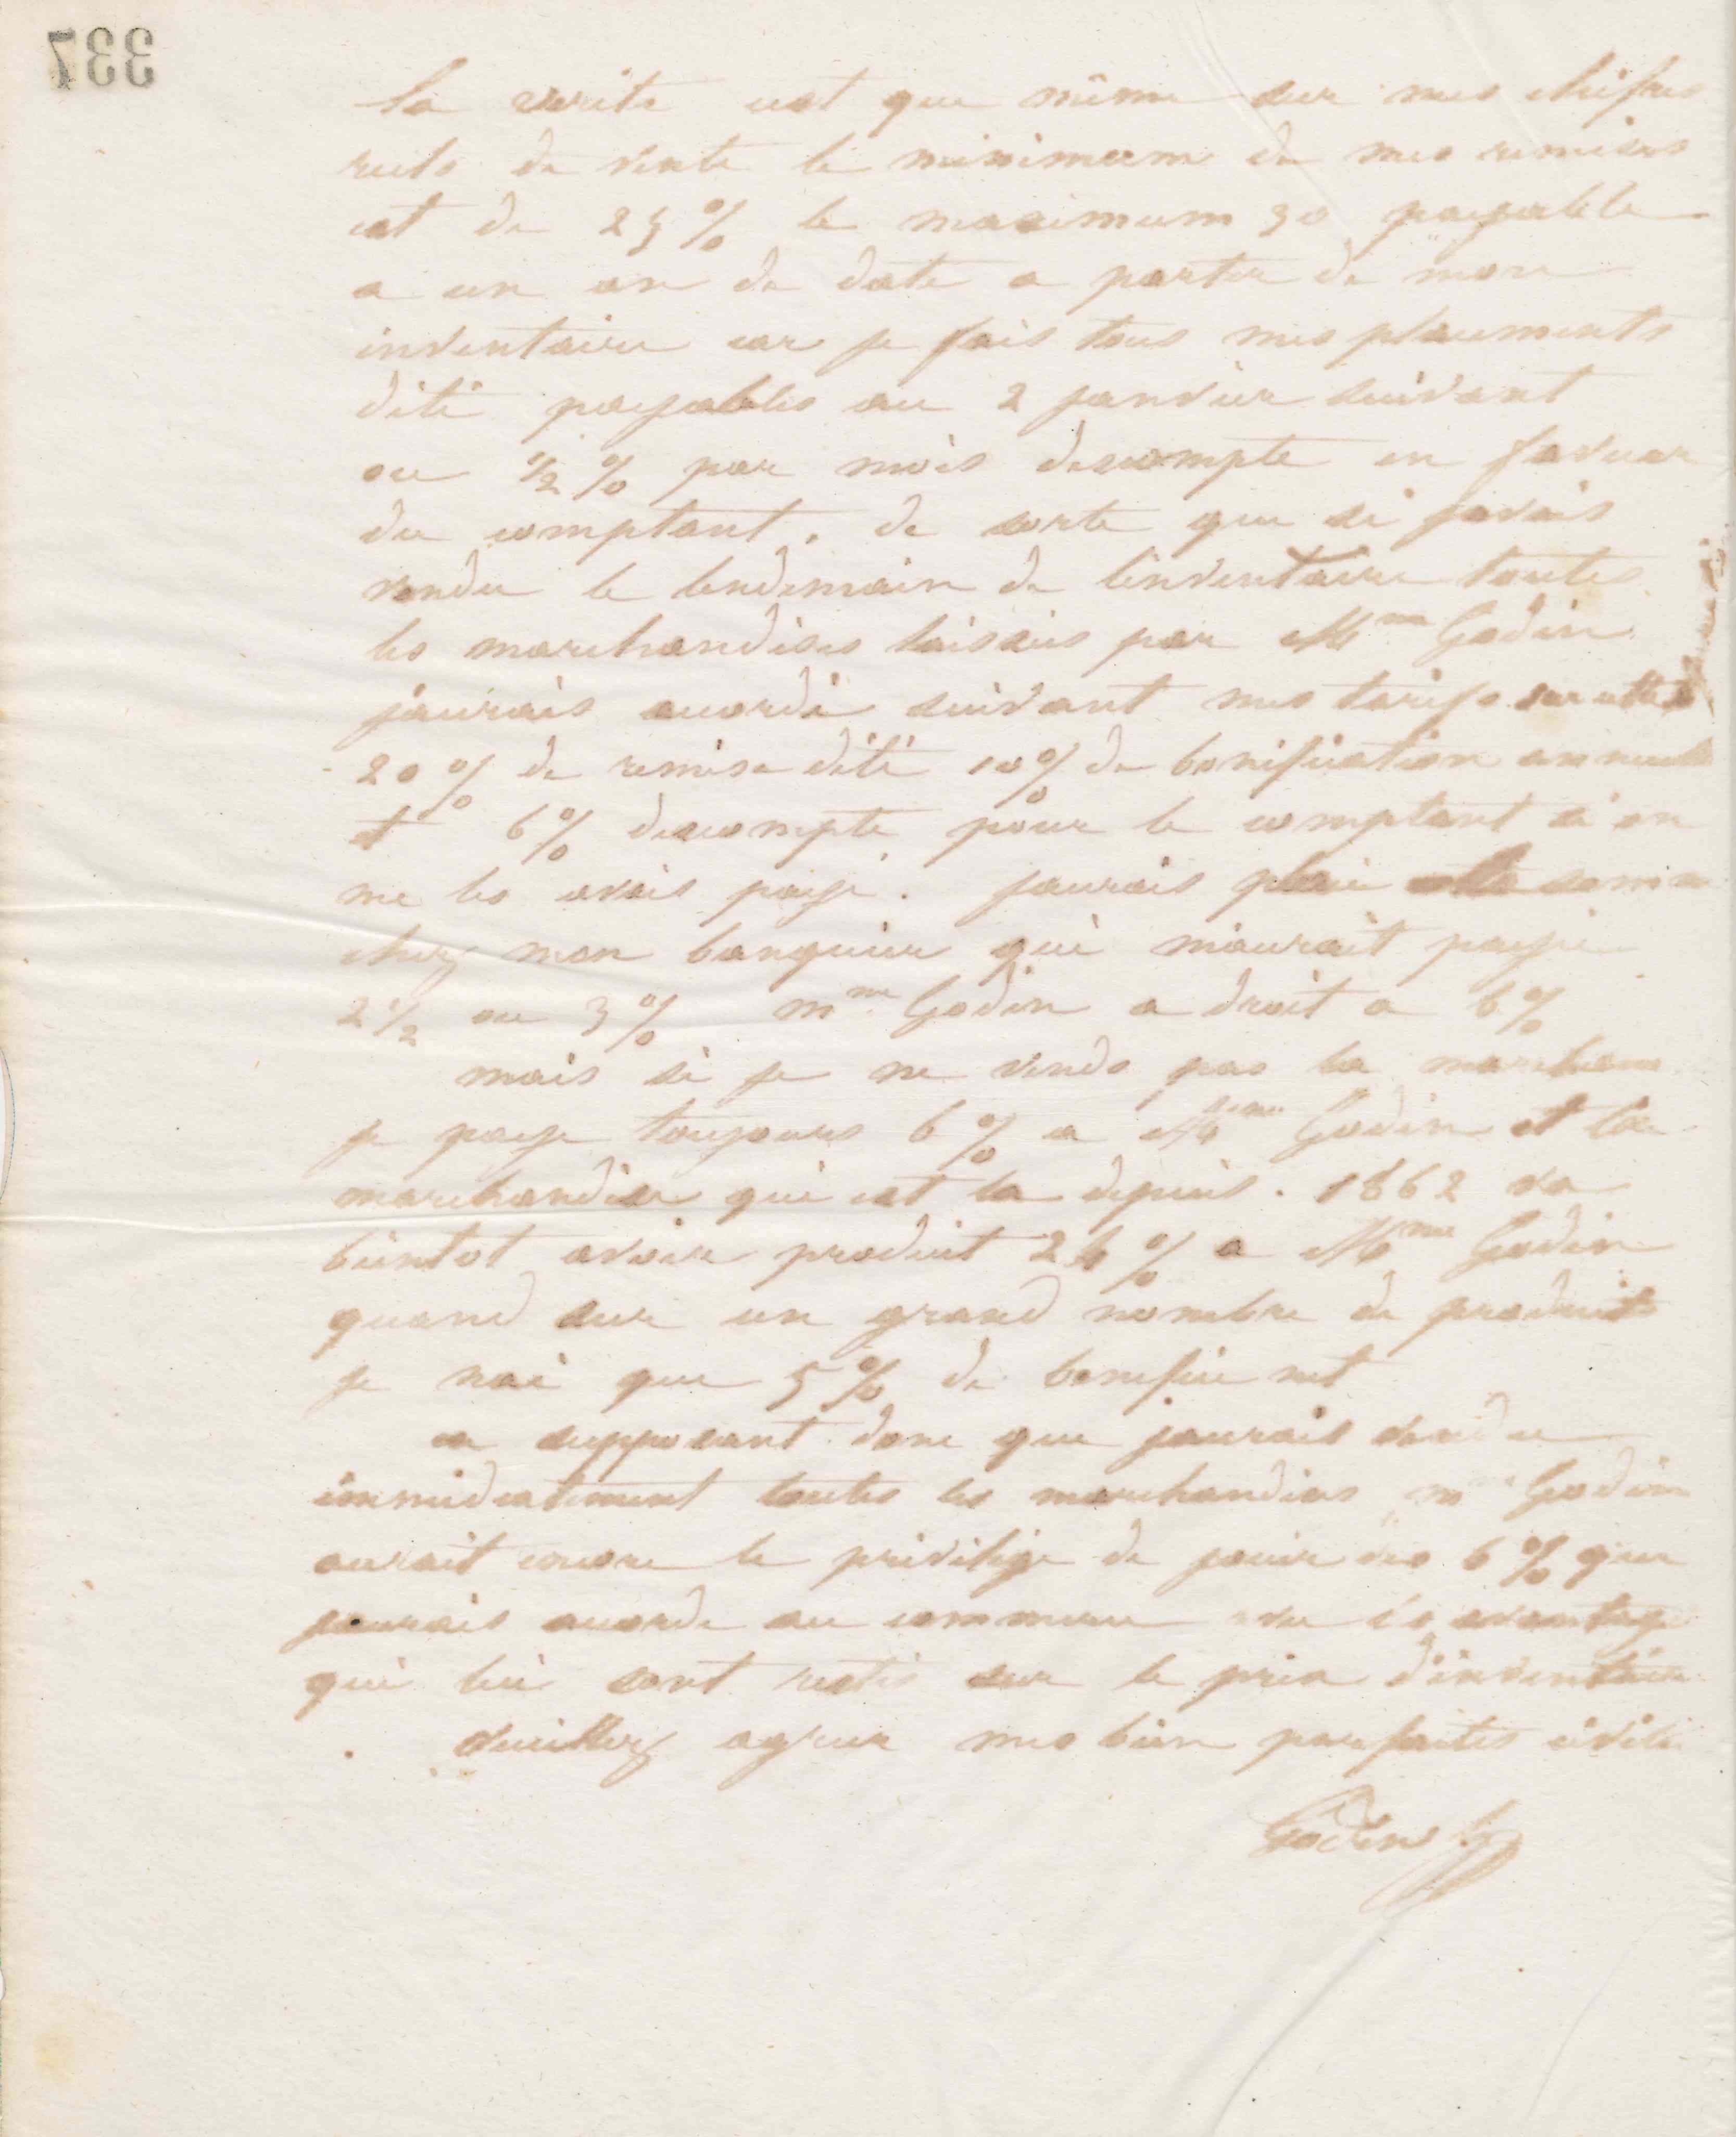 337
la verite est que même sur mes chiffres
reels de vente le minimum de mes remises
est de 25 % le maximum 30 payable
a un an de date a partir de mon
inventaire car je fais tous mes placements
dété payables au 2 janvier suivant
ou ½ % par mois descompte en faveur
du comptant. de sorte que si javais
vendu le lendemain de linventaire toutes
les marchandises laissés par Mme Godin
jaurais accordé suivant mes tarifs sur
20 % de remise dété 10 % de bonification annuelle
et 6 % descompte pour le comptant si on
me les avais payé. jaurais placé
chez mon banquier qui maurait payé
2 ½ ou 3 % Mme Godin a droit a 6 %
mais si je ne vends pas la
je paye toujours 6 % a Mme Godin et la
marchandise qui est la depuis . 1862 va
bientot avoir produit 24 % a Mme Godin
quand sur un grand nombre de produits
je nai que 5 % de benefice net
en supposant donc que jaurais vendu
immediatement toutes les marchandises Mme Godin
aurait encore le privilége de jouir des 6 % que
jaurais accordé au commerce avantage
qui lui sont restés sur le prix d'inventaire
veuillez agreer mes bien parfaites
Godin